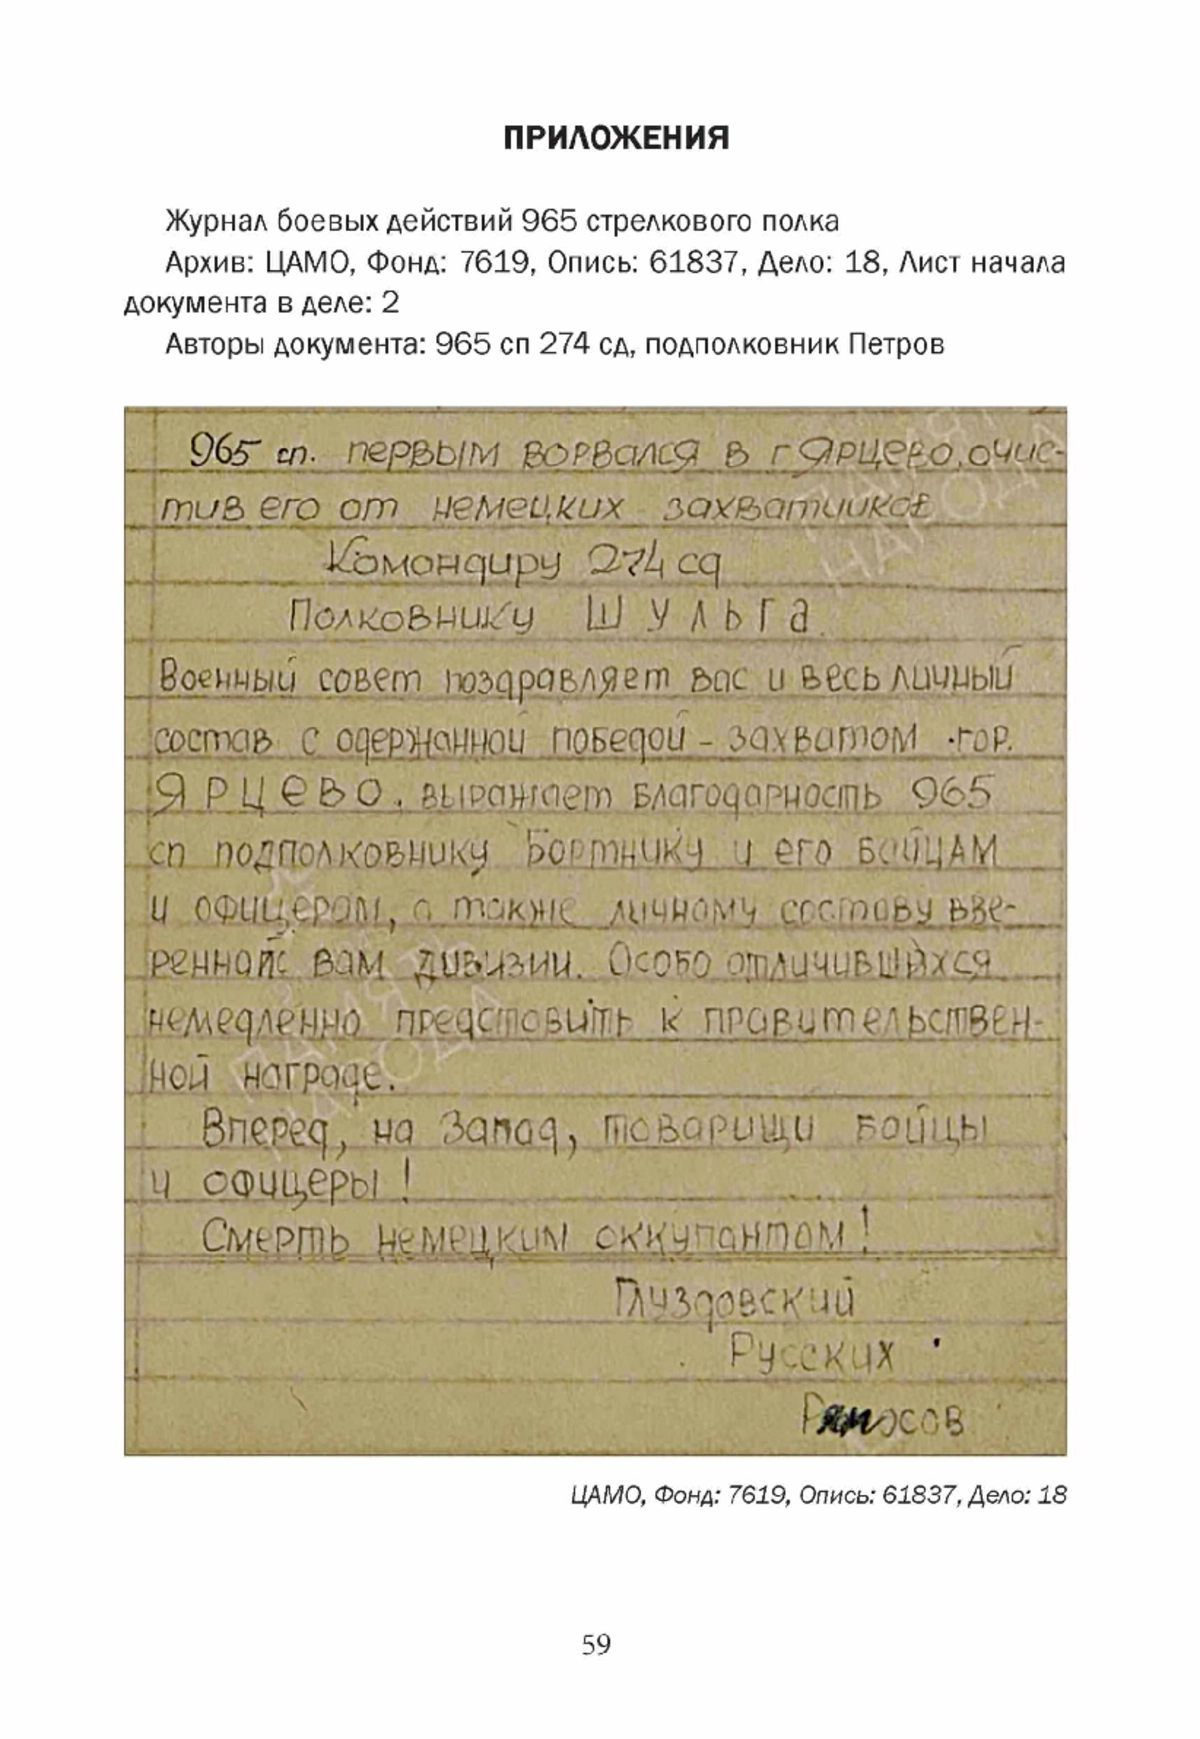 ПРИЛОЖЕНИЯ
Журнал боевых действий 965 стрелкового полка
Архив: ЦАМО, Фонд: 7619, Опись: 61837, Дело: 18, Лист начала
документа в деле: 2
Авторы документа: 965 сп 274 сд, подполковник Петров
965 сп. первым ворвался в г Ярцево, очис-
тив его от немецких захватчиков
Командиру 274 сд
Полковнику Шульга
Военный совет поздравляет вас и весь личный
состав с одержанной победой - захватом гор.
ЯРЦЕВО, выражает благодарность 965
сп подполковнику Бортнику и его бойцам
и офицерам, а также личному составу вве-
ренной вам дивизии. Особо отличившихся
немедленно представить к правительствен-
ной награде.
Вперед, на Запад, товарищи бойцы
и офицеры!
Смерть немецким оккупантам!
Глуздовский
Русских
ПАМЯТЬ
НАРОДА
ПАМЯТЬ
НАРОДА
ЦАМО, Фонд: 7619, Опись: 61837, Дело: 18
59